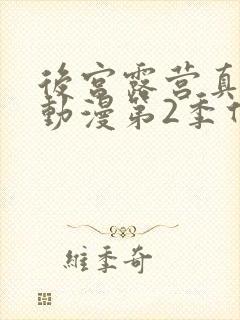 後宮露营真
動漫第2季
維季奇